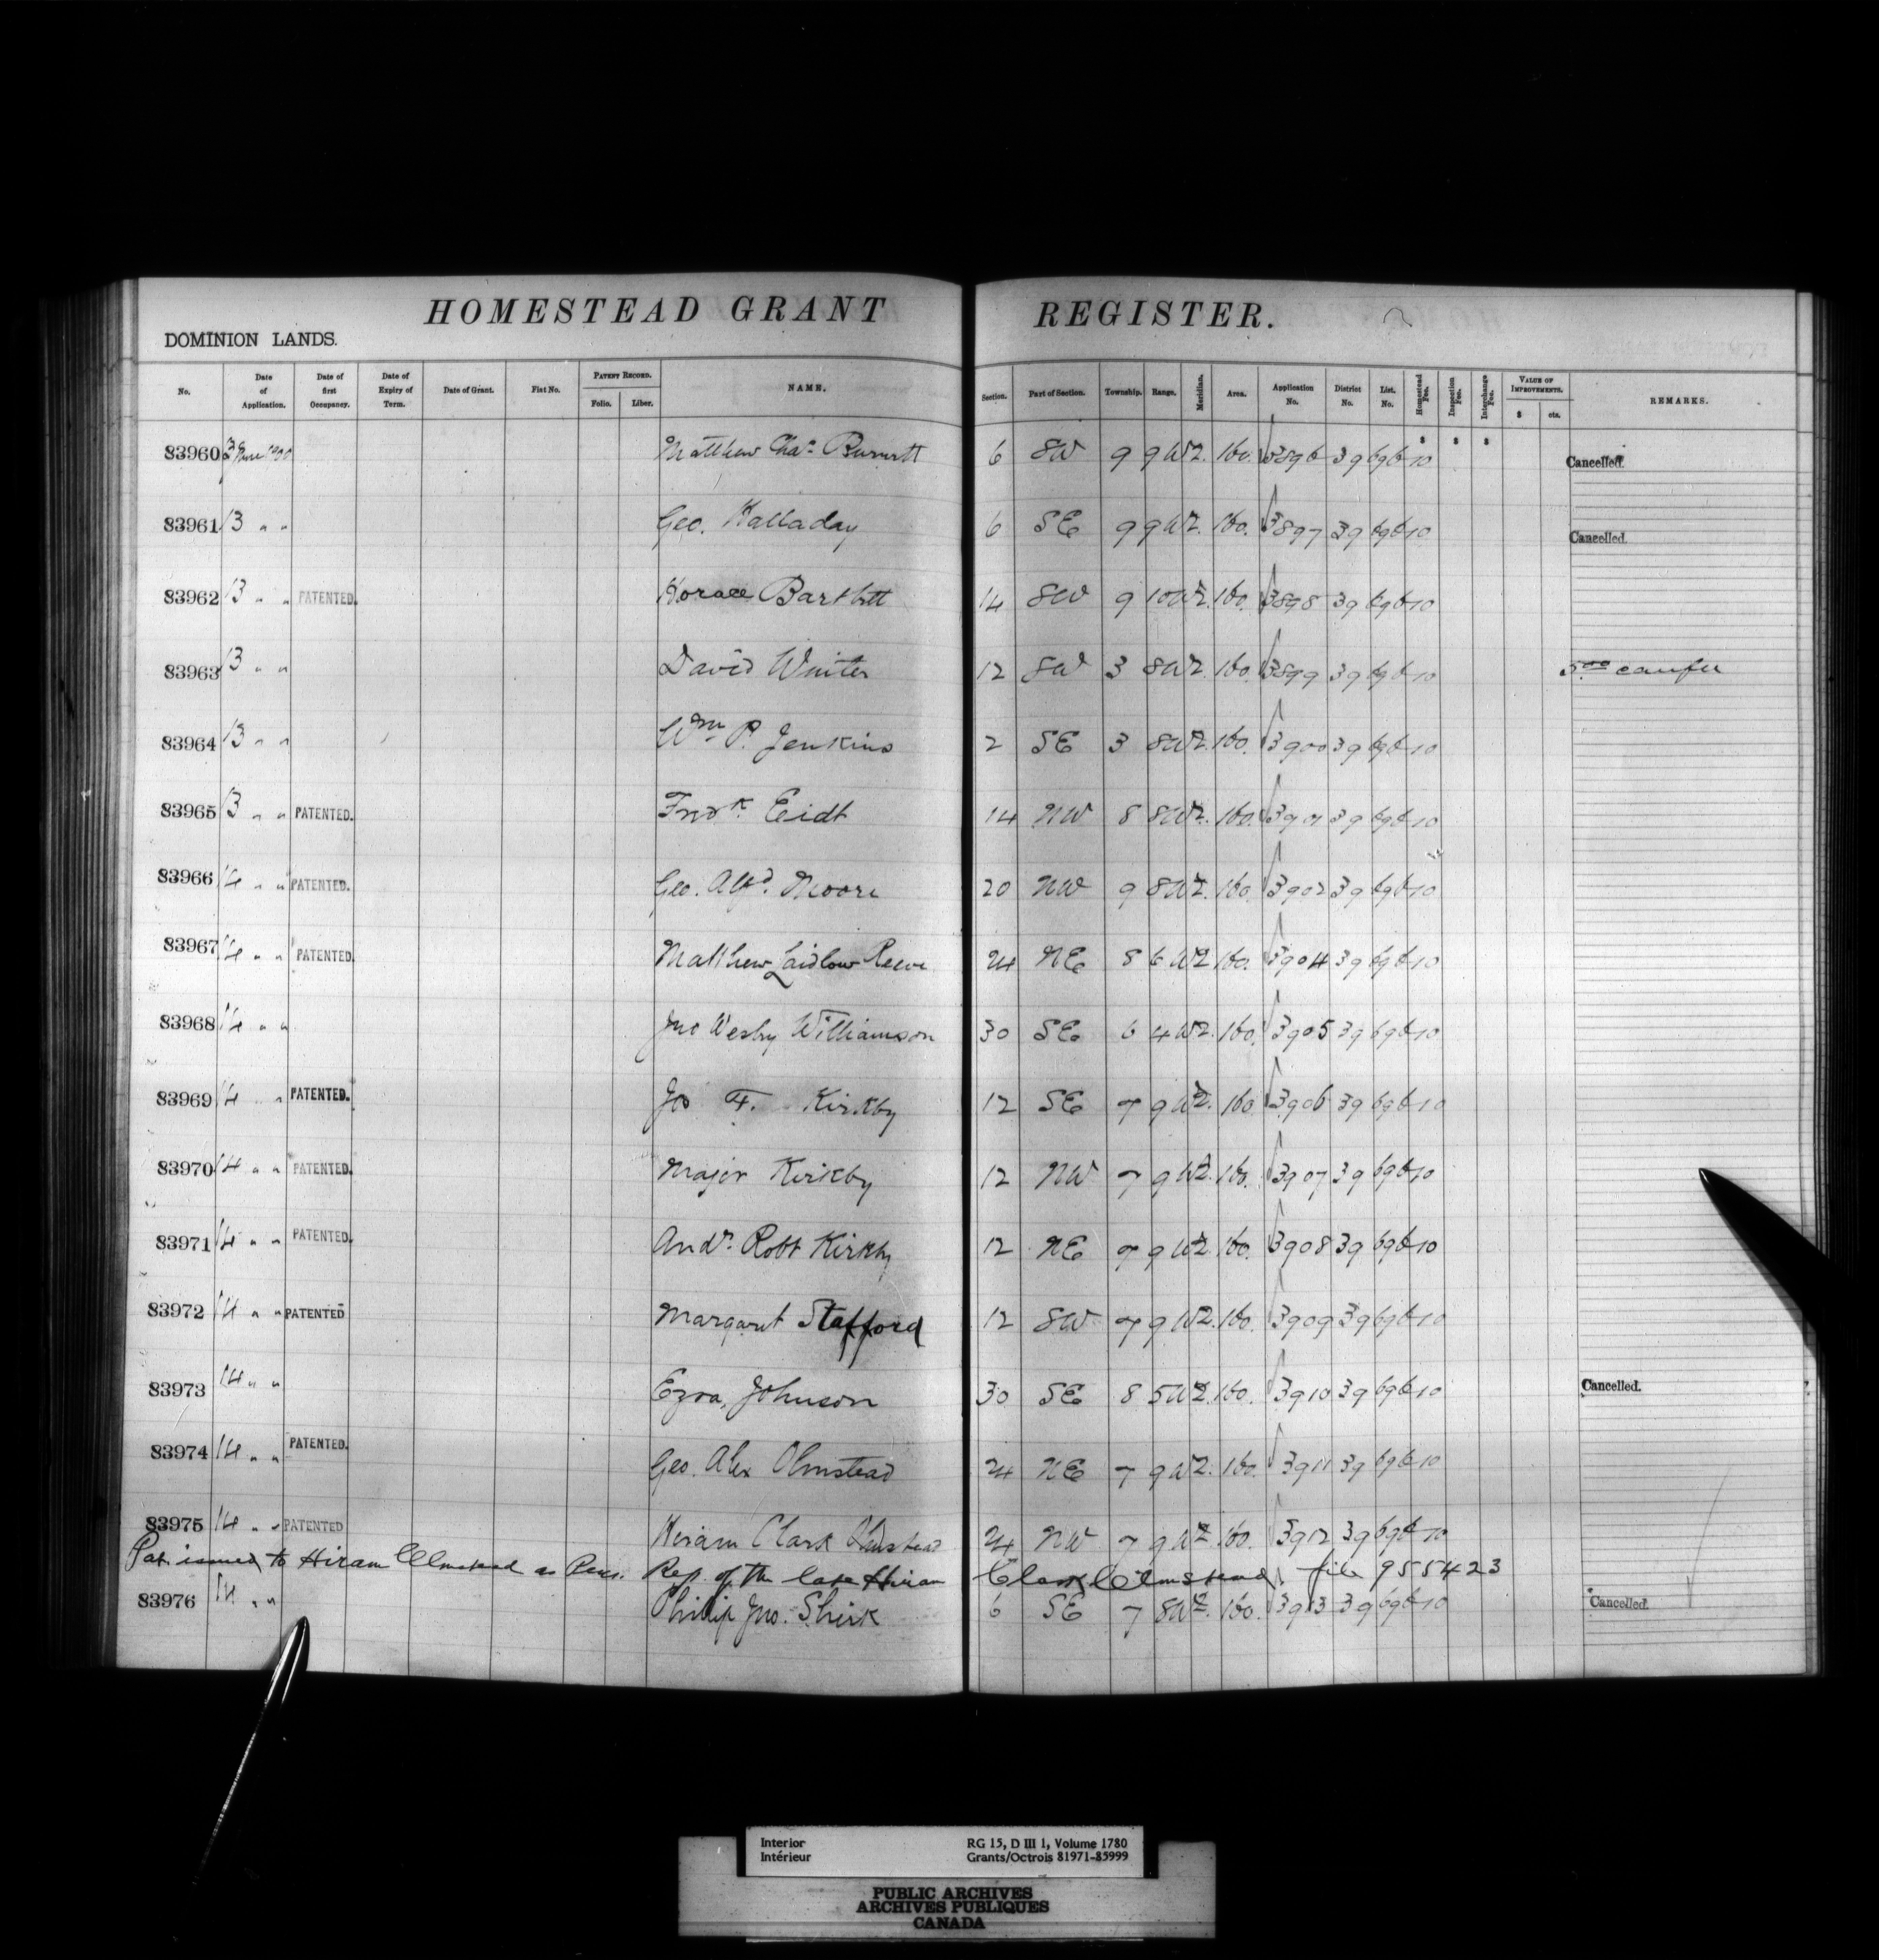 HOMESTEAD GRANT REGISTER.
DOMINION LANDS.
No. Date of Application. Date of first Occupancy. Date of Expiry of Term. Date of Grant. Fiat No. PATENT RECORD. Folio. Liber. NAME. Section. Part of Section. Township. Range. Meridian. Area. Application No. District No. List. No. Homestead Fee. Inspection Fee. Interchange Fee. VALUE OF IMPROVEMENTS. $ cts. REMARKS.
$ $ $
83960 13 June 1900 Matthew Chas. Burnett 6 SW 9 9 W2. 160. 3896 39 696 10 Cancelled.
83961 13 " " Geo. Halladay 6 SE 9 9 W2. 160. 3897 39 696 10 Cancelled.
83962 13 " " PATENTED. Horace Bartlett 14 SW 9 10 W2. 160. 3898 39 696 10
83963 13 " " David Winter 12 SW 3 8 W2. 160. 3899 39 696 10 5.00
83964 13 " " Wm P. Jenkins 2 SE 3 8 W2. 160. 3900 39 696 10
83965 13 " " PATENTED. Fredk. Eidt 14 NW 8 8 W2. 160. 3901 39 696 10
83966 14 " " PATENTED. Geo. Alfd. Moore 20 NW 9 8 W2. 160. 3902 39 696 10
83967 14 " " PATENTED. Matthew Laidlow Reeve 24 NE 8 6 W2 160. 3904 39 696 10
83968 14 " " Jno Wesley Williamson 30 SE 6 4 W2. 160. 3905 39 696 10
83969 14 " " PATENTED. Jos F. Kirkby 12 SE 7 9 W2. 160 3906 39 696 10
83970 14 " " PATENTED. Major Kirkby 12 NW 7 9 W2. 160. 3907 39 696 10
83971 14 " " PATENTED. Andw. Robt Kirkby 12 NE 7 9 W2. 160. 3908 39 696 10
83972 14 " " PATENTED Margaret Stafford 12 SW 7 9 W2. 160. 3909 39 696 10
83973 14 " " Ezra Johnson 30 SE 8 5 W2. 160. 3910 39 696 10 Cancelled.
83974 14 " " PATENTED. Geo. Alex Olmstead 24 NE 7 9 W2. 160. 3911 39 696 10
83975 14 " " PATENTED Hiram Clark Olmstead 24 NW 7 9 W2 160. 3912 39 696 10
Pat. issued to Hiram Olmstead as Pers. Rep. of the late Hiram Clark Olmstead. file 955423
83976 14 " " Philip Jno. Shirk 6 SE 7 8 W2. 160. 3913 39 696 10 Cancelled.
Interior RG 15, D III 1, Volume 1780
Intérieur Grants/Octrois 81971-85999
PUBLIC ARCHIVES
ARCHIVES PUBLIQUES
CANADA